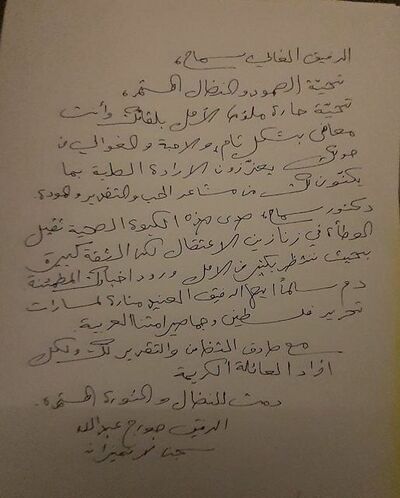 الرفيق الغالي سماح،
تحيّة الصمود والنضال المستمر،
تحيّة حارة ملؤها الأمل بلقائك وأنت
معافى بشكل تام، والأحبة والغوالي من
حولك يعزّزون الارادة الصلبة بما
يكنّون لك من مشاعر الحب والتقدير والمودة.
دكتور سماح، صدى هذه الكبوة الصحية ثقيل
الوطأة في زنازين الاعتقال لكن الثقة كبيرة
بحيث ننتظر بكثير من الأمل ورود اخبارك المطمئنة
دم سالماً ايها الرفيق العنيد منارة لمسارات
تحرير فلسطين وجماهير امتنا العربية.
مع صادق التضامن والتقدير لك ولكل
افراد العائلة الكريمة
دمت للنضال والثورة المستمرة.
الرفيق جورج عبدالله
سجن